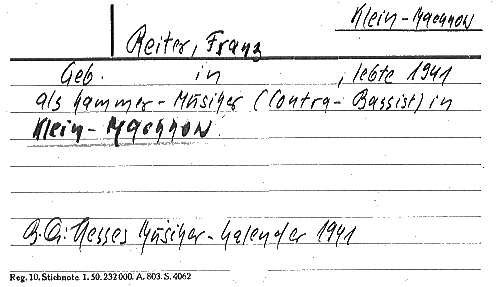 Klein-Machnow
Reiter, Franz
Geb. in , lebte 1941
als Kammer-Musiker (Contra-Bassist) in
Klein-Machnow.
B.A: Hesses Musiker-Kalender 1941
Reg. 10. Stichnote 1. 50. 232000. A. 803. S. 4062